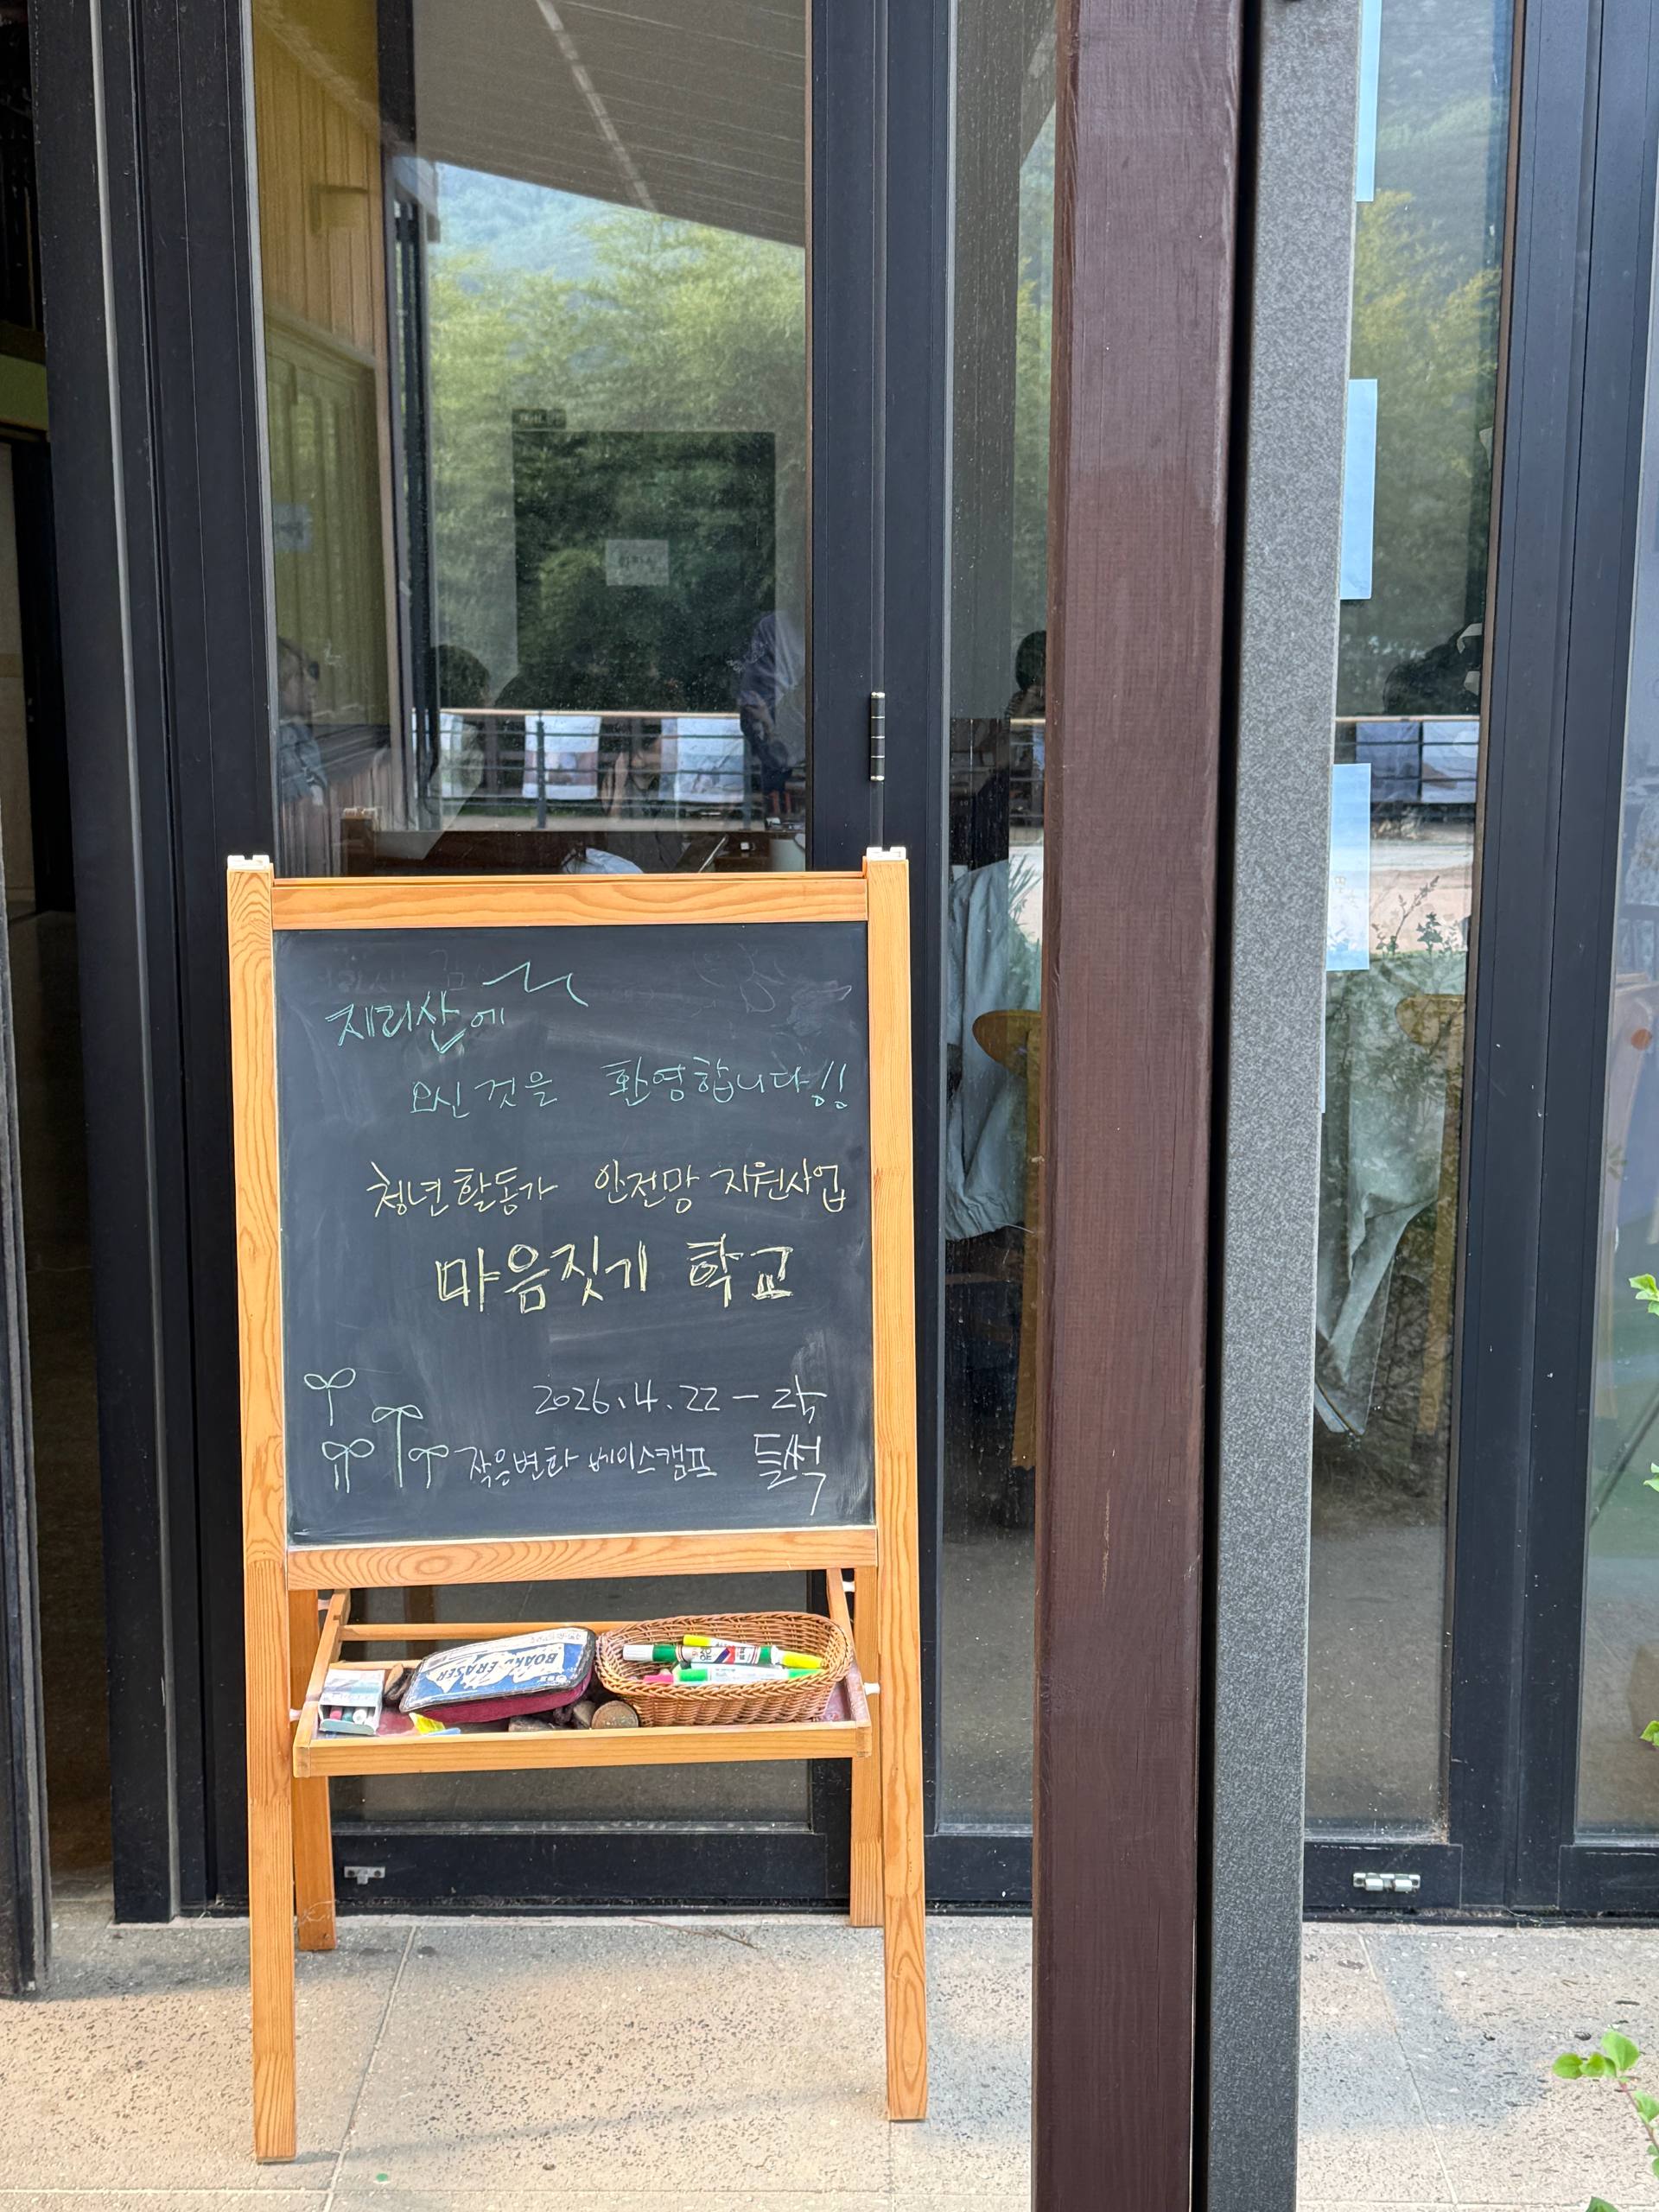 지리산에
오신 것을 환영합니다!!
청년활동가 안전망 지원사업
마음짓기 학교
2026.4.22 - 24
작은변화 베이스캠프 들썩
BOARD ERASER